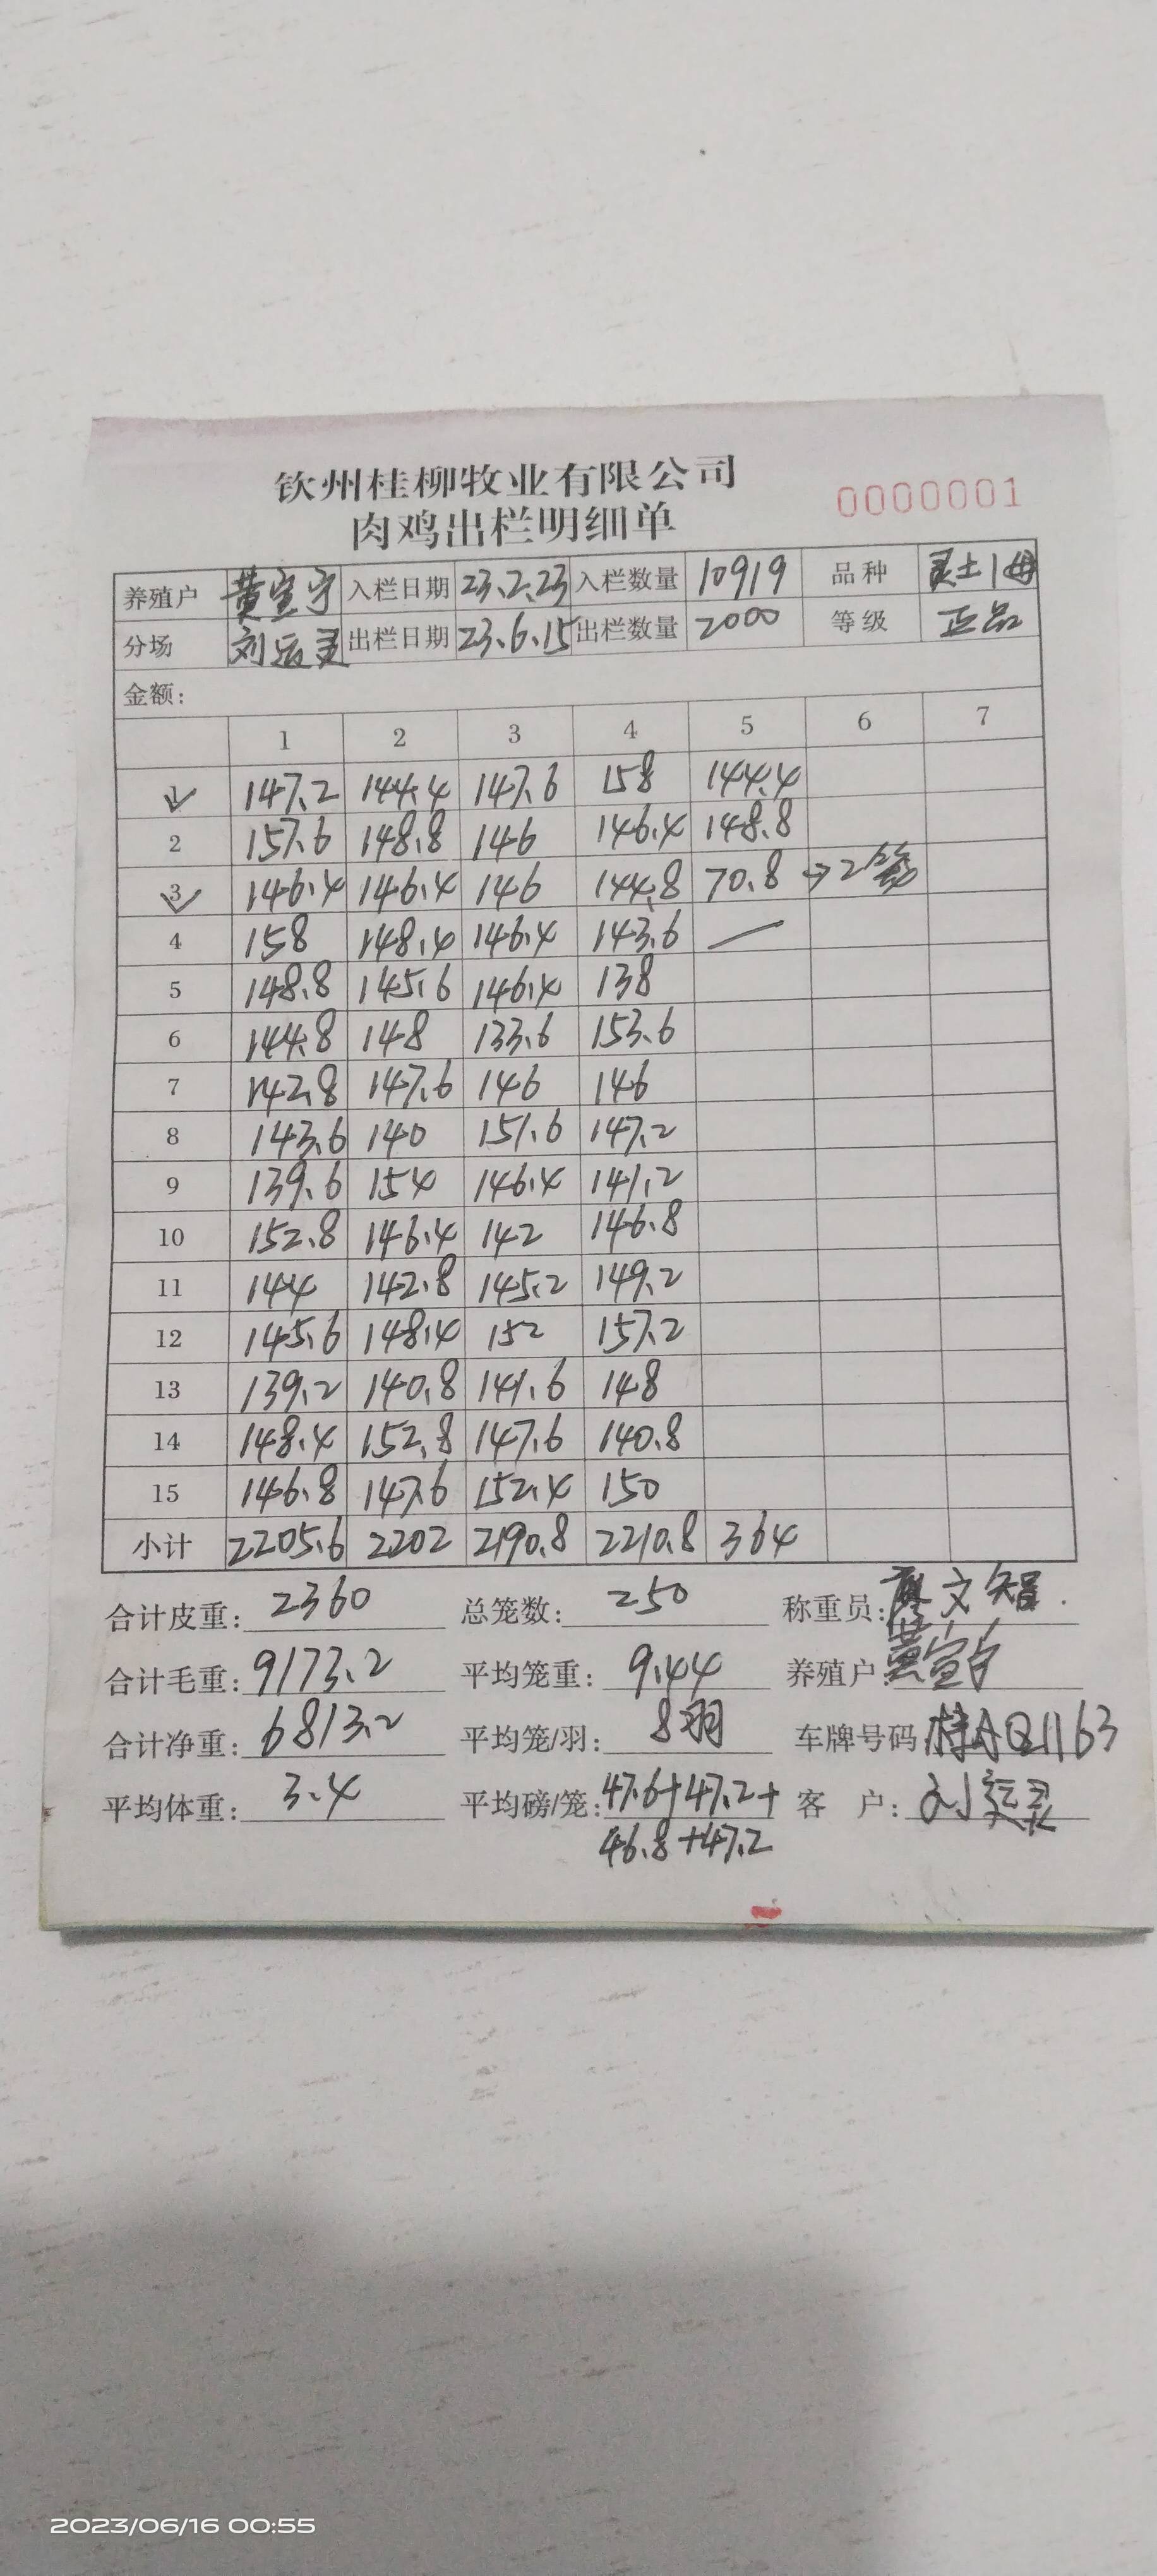 钦州桂柳牧业有限公司
肉鸡出栏明细单
0000001
养殖户 黄宣宁 入栏日期 23.2.23 入栏数量 10919 品种 灵土1母
分场 刘运灵 出栏日期 23.6.15 出栏数量 2000 等级 正品
金额:
1 2 3 4 5 6 7
1 147.2 144.4 147.6 158 144.4
2 157.6 148.8 146 146.4 148.8
3 146.4 146.4 146 144.8 70.8 →2笼
4 158 148.4 146.4 143.6 —
5 148.8 145.6 146.4 138
6 144.8 148 133.6 153.6
7 142.8 147.6 146 146
8 143.6 140 151.6 147.2
9 139.6 154 146.4 141.2
10 152.8 146.4 142 146.8
11 144 142.8 145.2 149.2
12 145.6 148.4 152 157.2
13 139.2 140.8 141.6 148
14 148.4 152.8 147.6 140.8
15 146.8 147.6 152.4 150
小计 2205.6 2202 2190.8 2210.8 364
合计皮重: 2360 总笼数: 250 称重员: 文智
合计毛重: 9173.2 平均笼重: 9.44 养殖户: 黄宣宁
合计净重: 6813.2 平均笼/羽: 8羽 车牌号码 桂AQ1163
平均体重: 3.4 平均磅/笼: 47.6+47.2+ 客 户: 刘运灵
46.8+47.2
2023/06/16 00:55